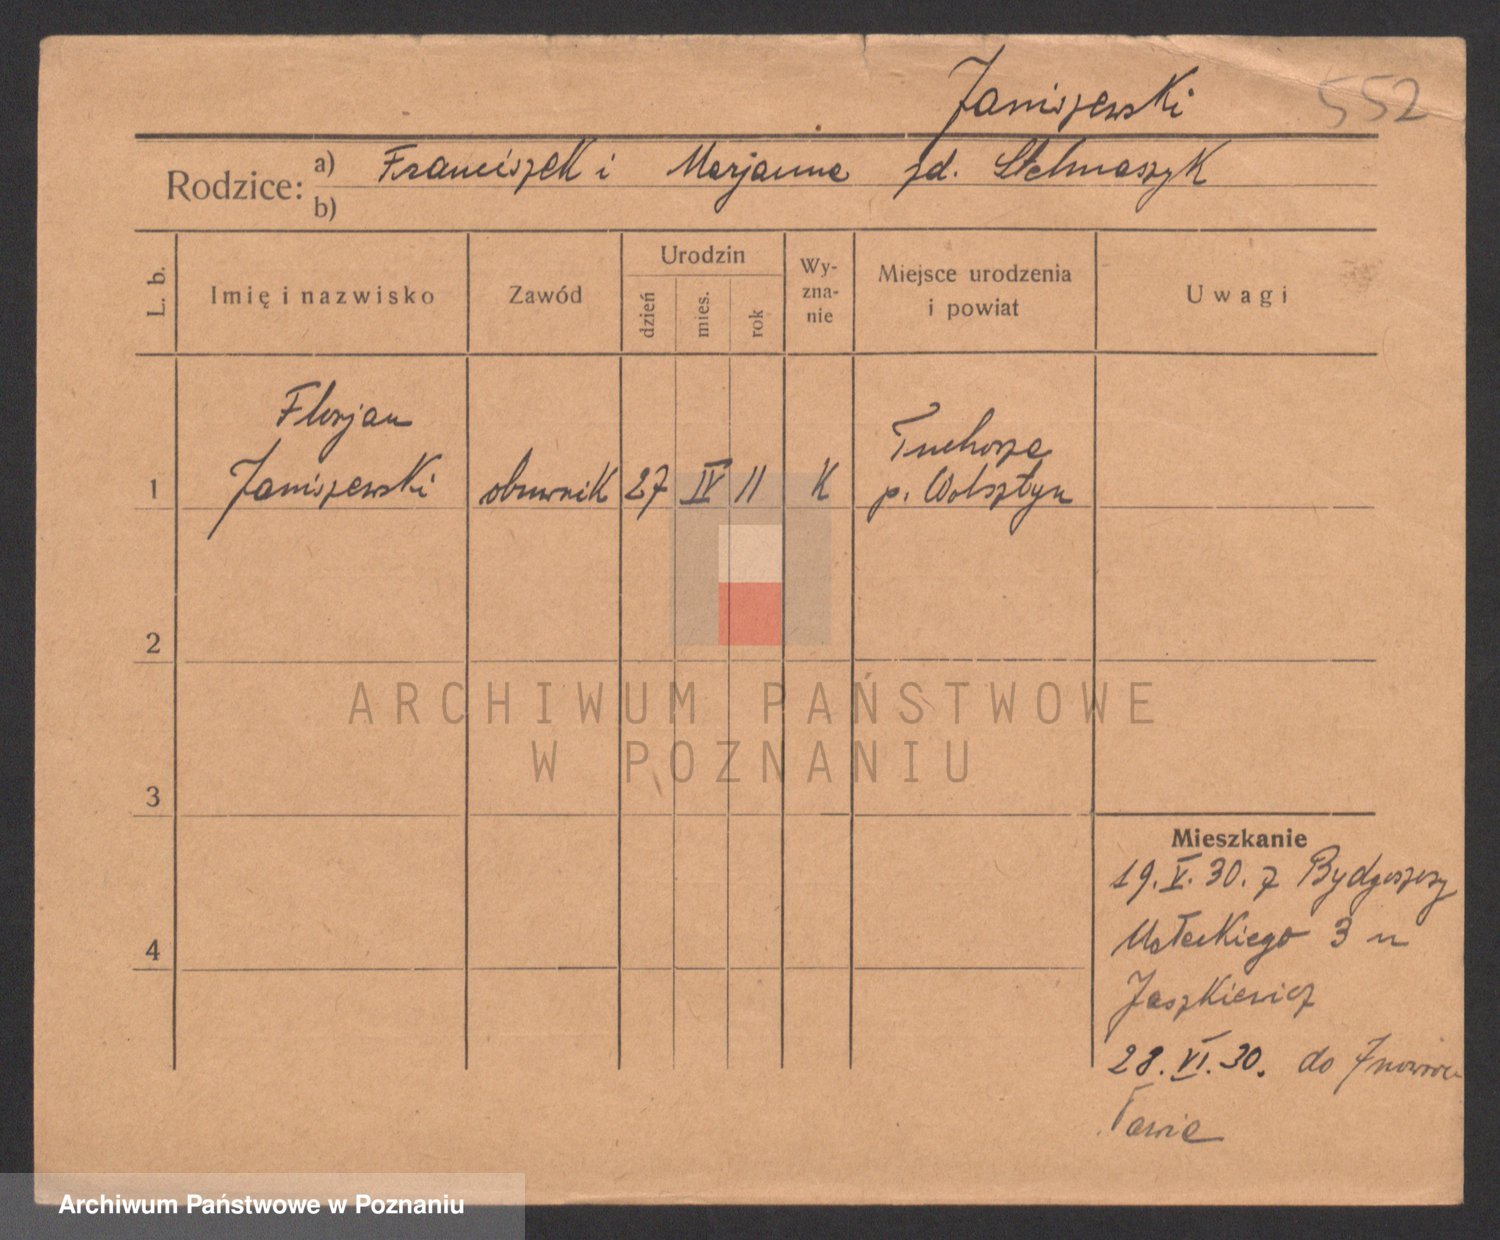 Janiszewski 552
Rodzice: a) Franciszek i Marjanna zd. Stelmaszyk
b)
L. b.
Imię i nazwisko
Zawód
Urodzin
dzień
mies.
rok
Wy-
zna-
nie
Miejsce urodzenia
i powiat
Uwagi
Florjan
1 Janiszewski obuwnik 27 IV 11 K
Tuchorza
p. Wolsztyn
2
3
4
Mieszkanie
19. V. 30. z Bydgoszczy
3 u
Jaszkiewicz
28. VI. 30. do Inowroc
ławia
ARCHIWUM PAŃSTWOWE
W POZNANIU
Archiwum Państwowe w Poznaniu